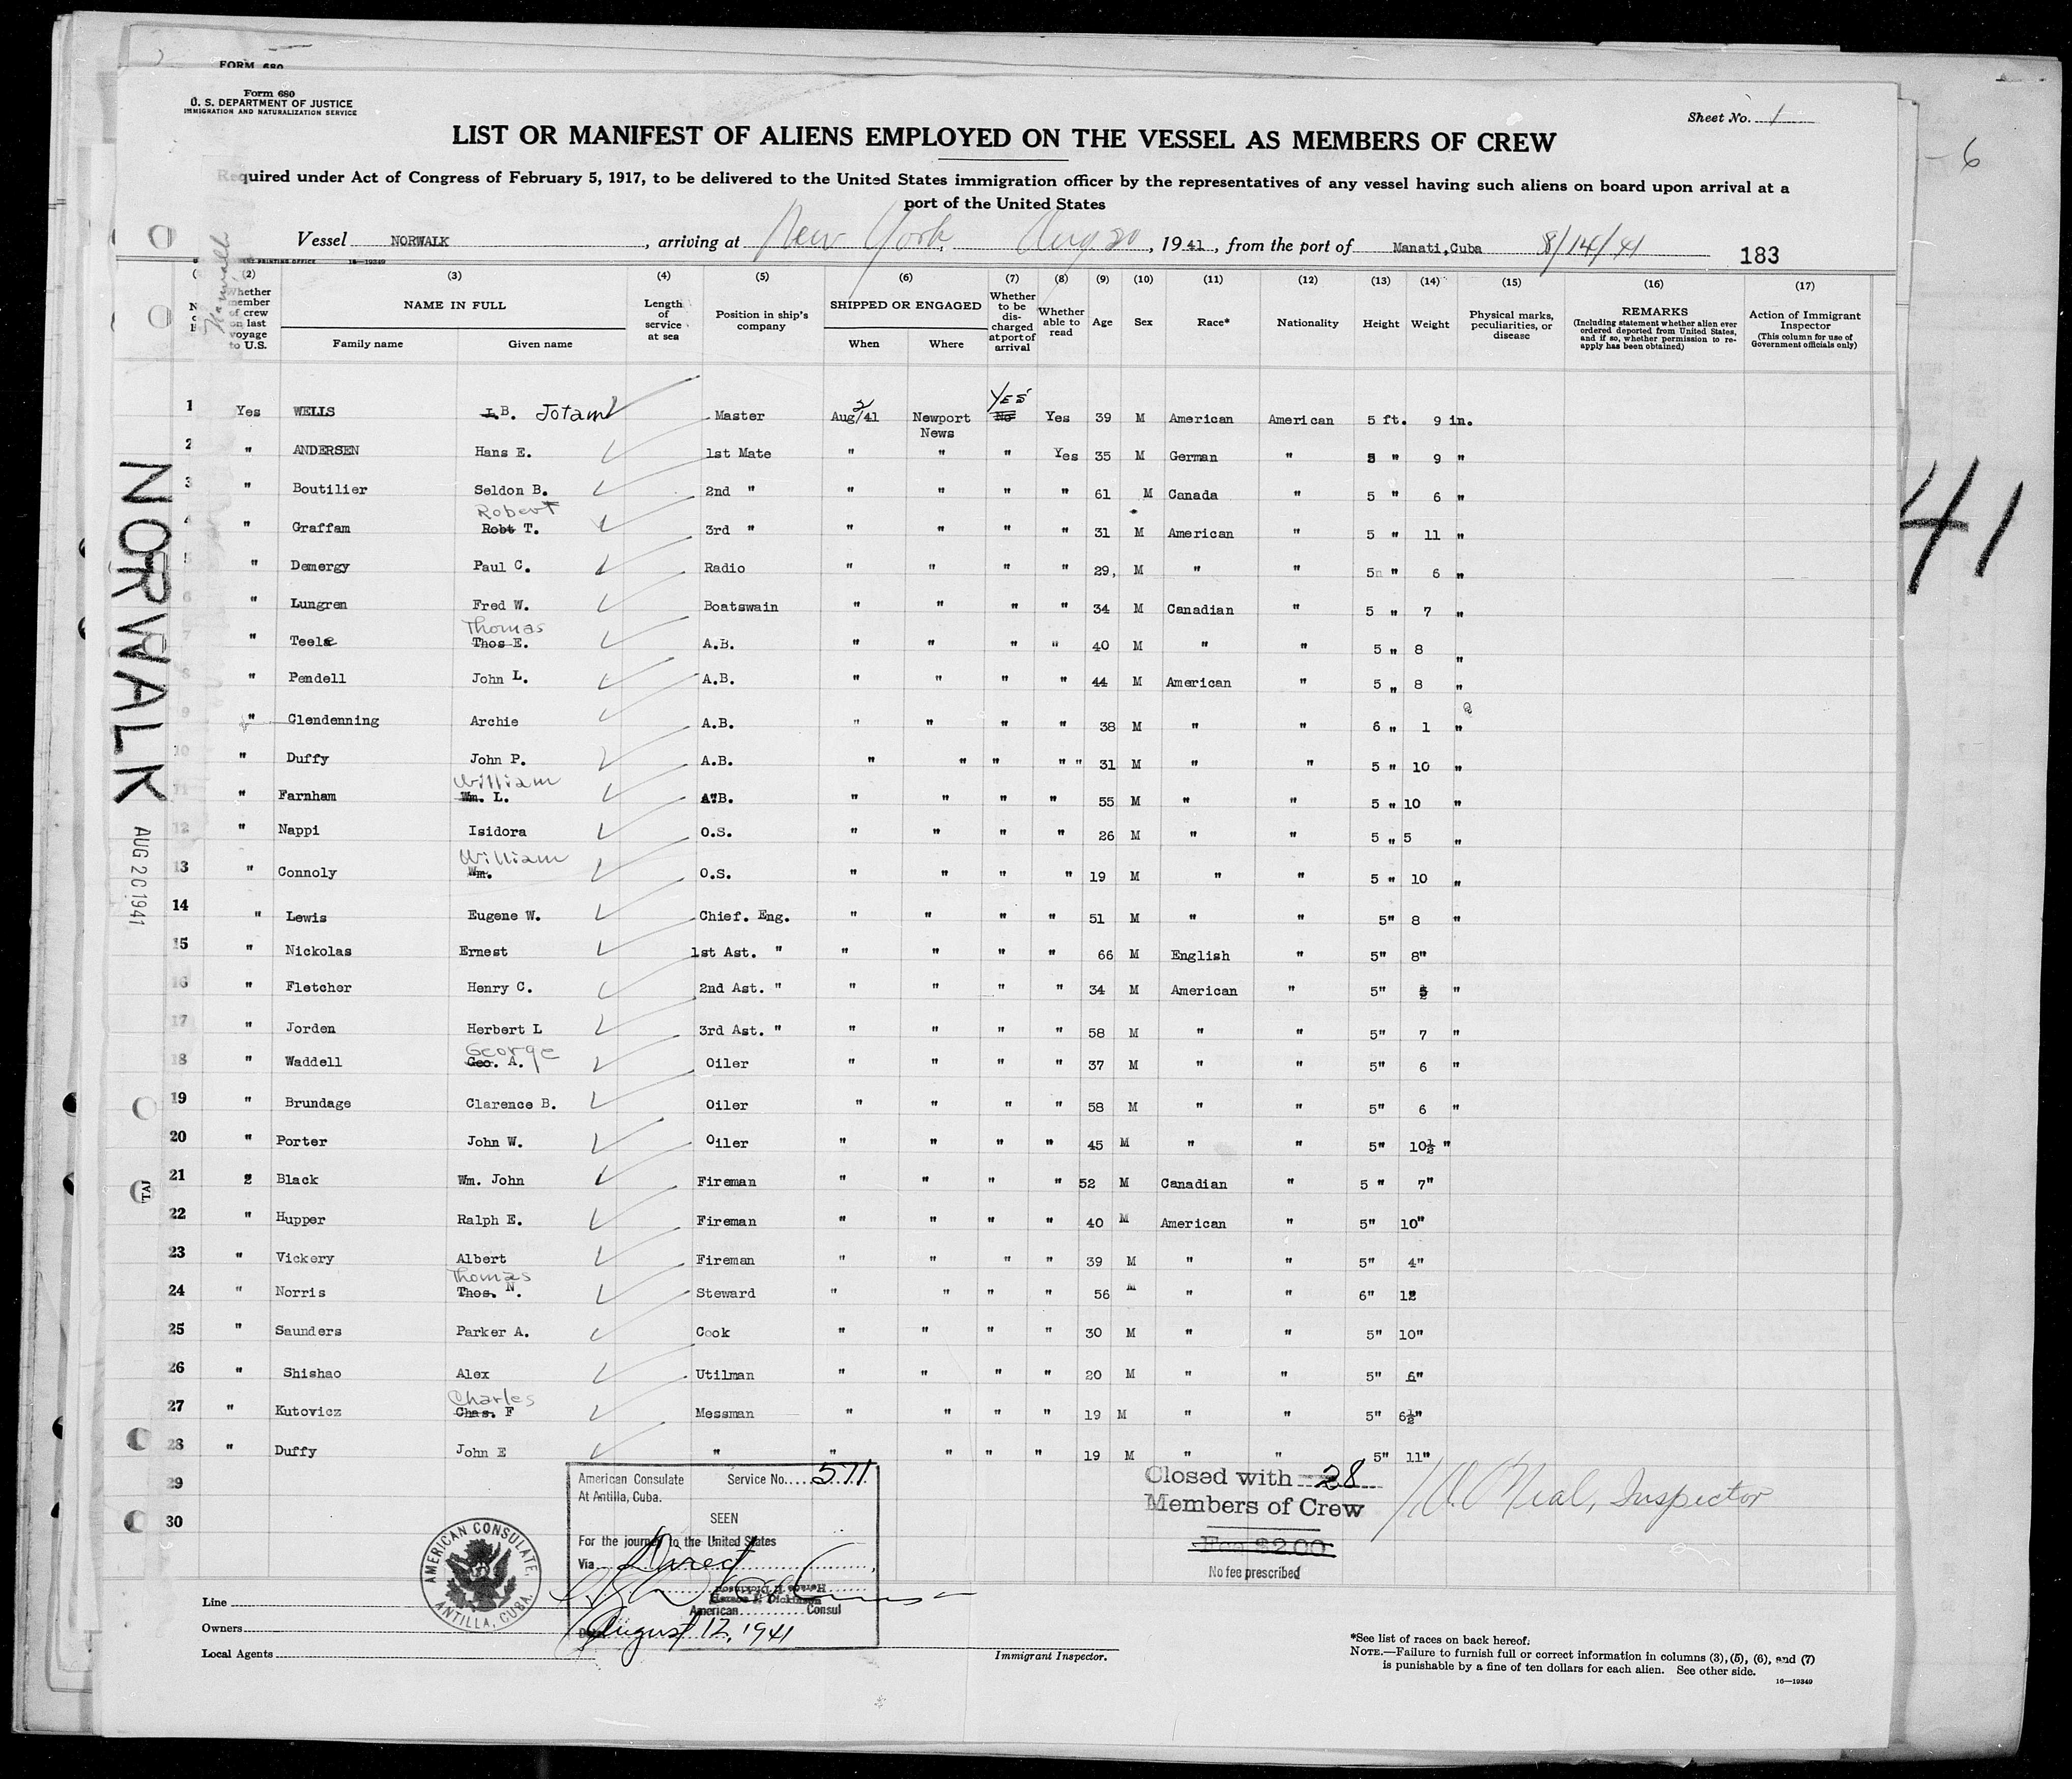 FORM 680
Form 680
U. S. DEPARTMENT OF JUSTICE
IMMIGRATION AND NATURALIZATION SERVICE
Sheet No. 1
LIST OR MANIFEST OF ALIENS EMPLOYED ON THE VESSEL AS MEMBERS OF CREW
Required under Act of Congress of February 5, 1917, to be delivered to the United States immigration officer by the representatives of any vessel having such aliens on board upon arrival at a
port of the United States
Vessel NORWALK, arriving at New York, Aug 20, 1941, from the port of Manati, Cuba 8/14/41 183
16—19349
(2) (3) (4) (5) (6) (7) (8) (9) (10) (11) (12) (13) (14) (15) (16) (17)
Whether member of crew on last voyage to U.S.
NAME IN FULL
Family name
Given name
Length of service at sea
Position in ship's company
SHIPPED OR ENGAGED
When
Where
Whether to be discharged at port of arrival
Whether able to read
Age
Sex
Race*
Nationality
Height
Weight
Physical marks, peculiarities, or disease
REMARKS
(Including statement whether alien ever ordered deported from United States, and if so, whether permission to reapply has been obtained)
Action of Immigrant Inspector
(This column for use of Government officials only)
1 Yes WELLS J.B. Jotam Master Aug 2/41 Newport News No YES Yes 39 M American American 5 ft. 9 in.
2 " ANDERSEN Hans E. 1st Mate " " " Yes 35 M German " 5 " 9 "
3 " Boutilier Seldon B. 2nd " " " " " 61 M Canada " 5 " 6 "
Robert
4 " Graffam Robt T. 3rd " " " " " 31 M American " 5 " 11 "
5 " Demergy Paul C. Radio " " " " 29, M " " 5 " 6 "
6 " Lungren Fred W. Boatswain " " " " 34 M Canadian " 5 " 7 "
Thomas
7 " Teele Thos E. A.B. " " " " 40 M " " 5 " 8 "
8 " Pendell John L. A.B. " " " " 44 M American " 5 " 8 "
9 " Clendenning Archie A.B. " " " " 38 M " " 6 " 1 "
10 " Duffy John P. A.B. " " " " " 31 M " " 5 " 10 "
William
11 " Farnham Wm. L. A.B. " " " " 55 M " " 5 " 10 "
12 " Nappi Isidora O.S. " " " " 26 M " " 5 " 5 "
William
13 " Connoly Wm. O.S. " " " " 19 M " " 5 " 10 "
14 " Lewis Eugene W. Chief. Eng. " " " " 51 M " " 5" 8 "
15 " Nickolas Ernest 1st Ast. " " " " " 66 M English " 5" 8"
16 " Fletcher Henry C. 2nd Ast. " " " " " 34 M American " 5" "
17 " Jorden Herbert L 3rd Ast. " " " " " 58 M " " 5" 7 "
George
18 " Waddell Geo. A. Oiler " " " " 37 M " " 5" 6 "
19 " Brundage Clarence B. Oiler " " " " 58 M " " 5" 6 "
20 " Porter John W. Oiler " " " " 45 M " " 5" 10½ "
21 2 Black Wm. John Fireman " " " " 52 M Canadian " 5 " 7"
22 " Hupper Ralph E. Fireman " " " " 40 M American " 5" 10"
23 " Vickery Albert Fireman " " " " 39 M " " 5" 4"
Thomas
24 " Norris Thos. N. Steward " " " " 56 M " " 6" 12
25 " Saunders Parker A. Cook " " " " 30 M " " 5" 10"
26 " Shishao Alex Utilman " " " " 20 M " " 5" 6"
Charles
27 " Kutovicz Chas. F Messman " " " " 19 M " " 5" 6½"
28 " Duffy John E " " " " " 19 M " " 5" 11"
29
30
American Consulate Service No. 571
At Antilla, Cuba.
SEEN
For the journey to the United States
Via Direct
Horace J. Dickinson
American Consul
Date August 12, 1941
AMERICAN CONSULATE, ANTILLA, CUBA.
Closed with 28
Members of Crew
Fee $2.00
No fee prescribed
Neal, Inspector
Line
Owners
Local Agents
Immigrant Inspector.
*See list of races on back hereof.
NOTE.—Failure to furnish full or correct information in columns (3), (5), (6), and (7)
is punishable by a fine of ten dollars for each alien. See other side.
16—19349
NORWALK
AUG 20 1941
Norwalk
41
- 6